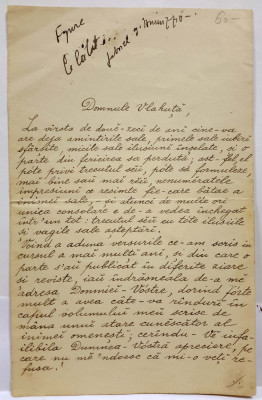 60-
Domnule Vlahuță,
La vîrsta de două-zeci de ani cine-va
are deja amintirile sale, primele sale iubiri
sfărîmite, micile sale ilusiuni înșelate, și o
parte din fericirea sa perdută; ast-fel, el
pote privi trecutul seŭ, pote să formuleze,
mai bine saŭ mai reŭ nenumăratele
impresiuni ce resimte fie-care bătae a
inimei sale, – și atunci de multe ori
unica consolare e de-a vedea închegat
într'un tot: trecutul seŭ cu tote ilusiile
și vagile sale așteptări.
Voind a aduna versurile ce-am scris în
cursul a mai multi ani, si din care o
parte s'aŭ publicat in diferite ziare
si reviste, iaŭ îndrăsnéla de-a mĕ
adresa Domniei-Vóstre, dorind forte
mult a avea câte-va rînduri in
capul volumului meŭ scrise de
mâna unui atare cunăscător al
inimei omenesti; cerîndu-Ve infa-
ilibila Dumnea-Vóstră apreciare, pe
care nu mĕ 'ndoesc că mi-o veți re-
fusa.